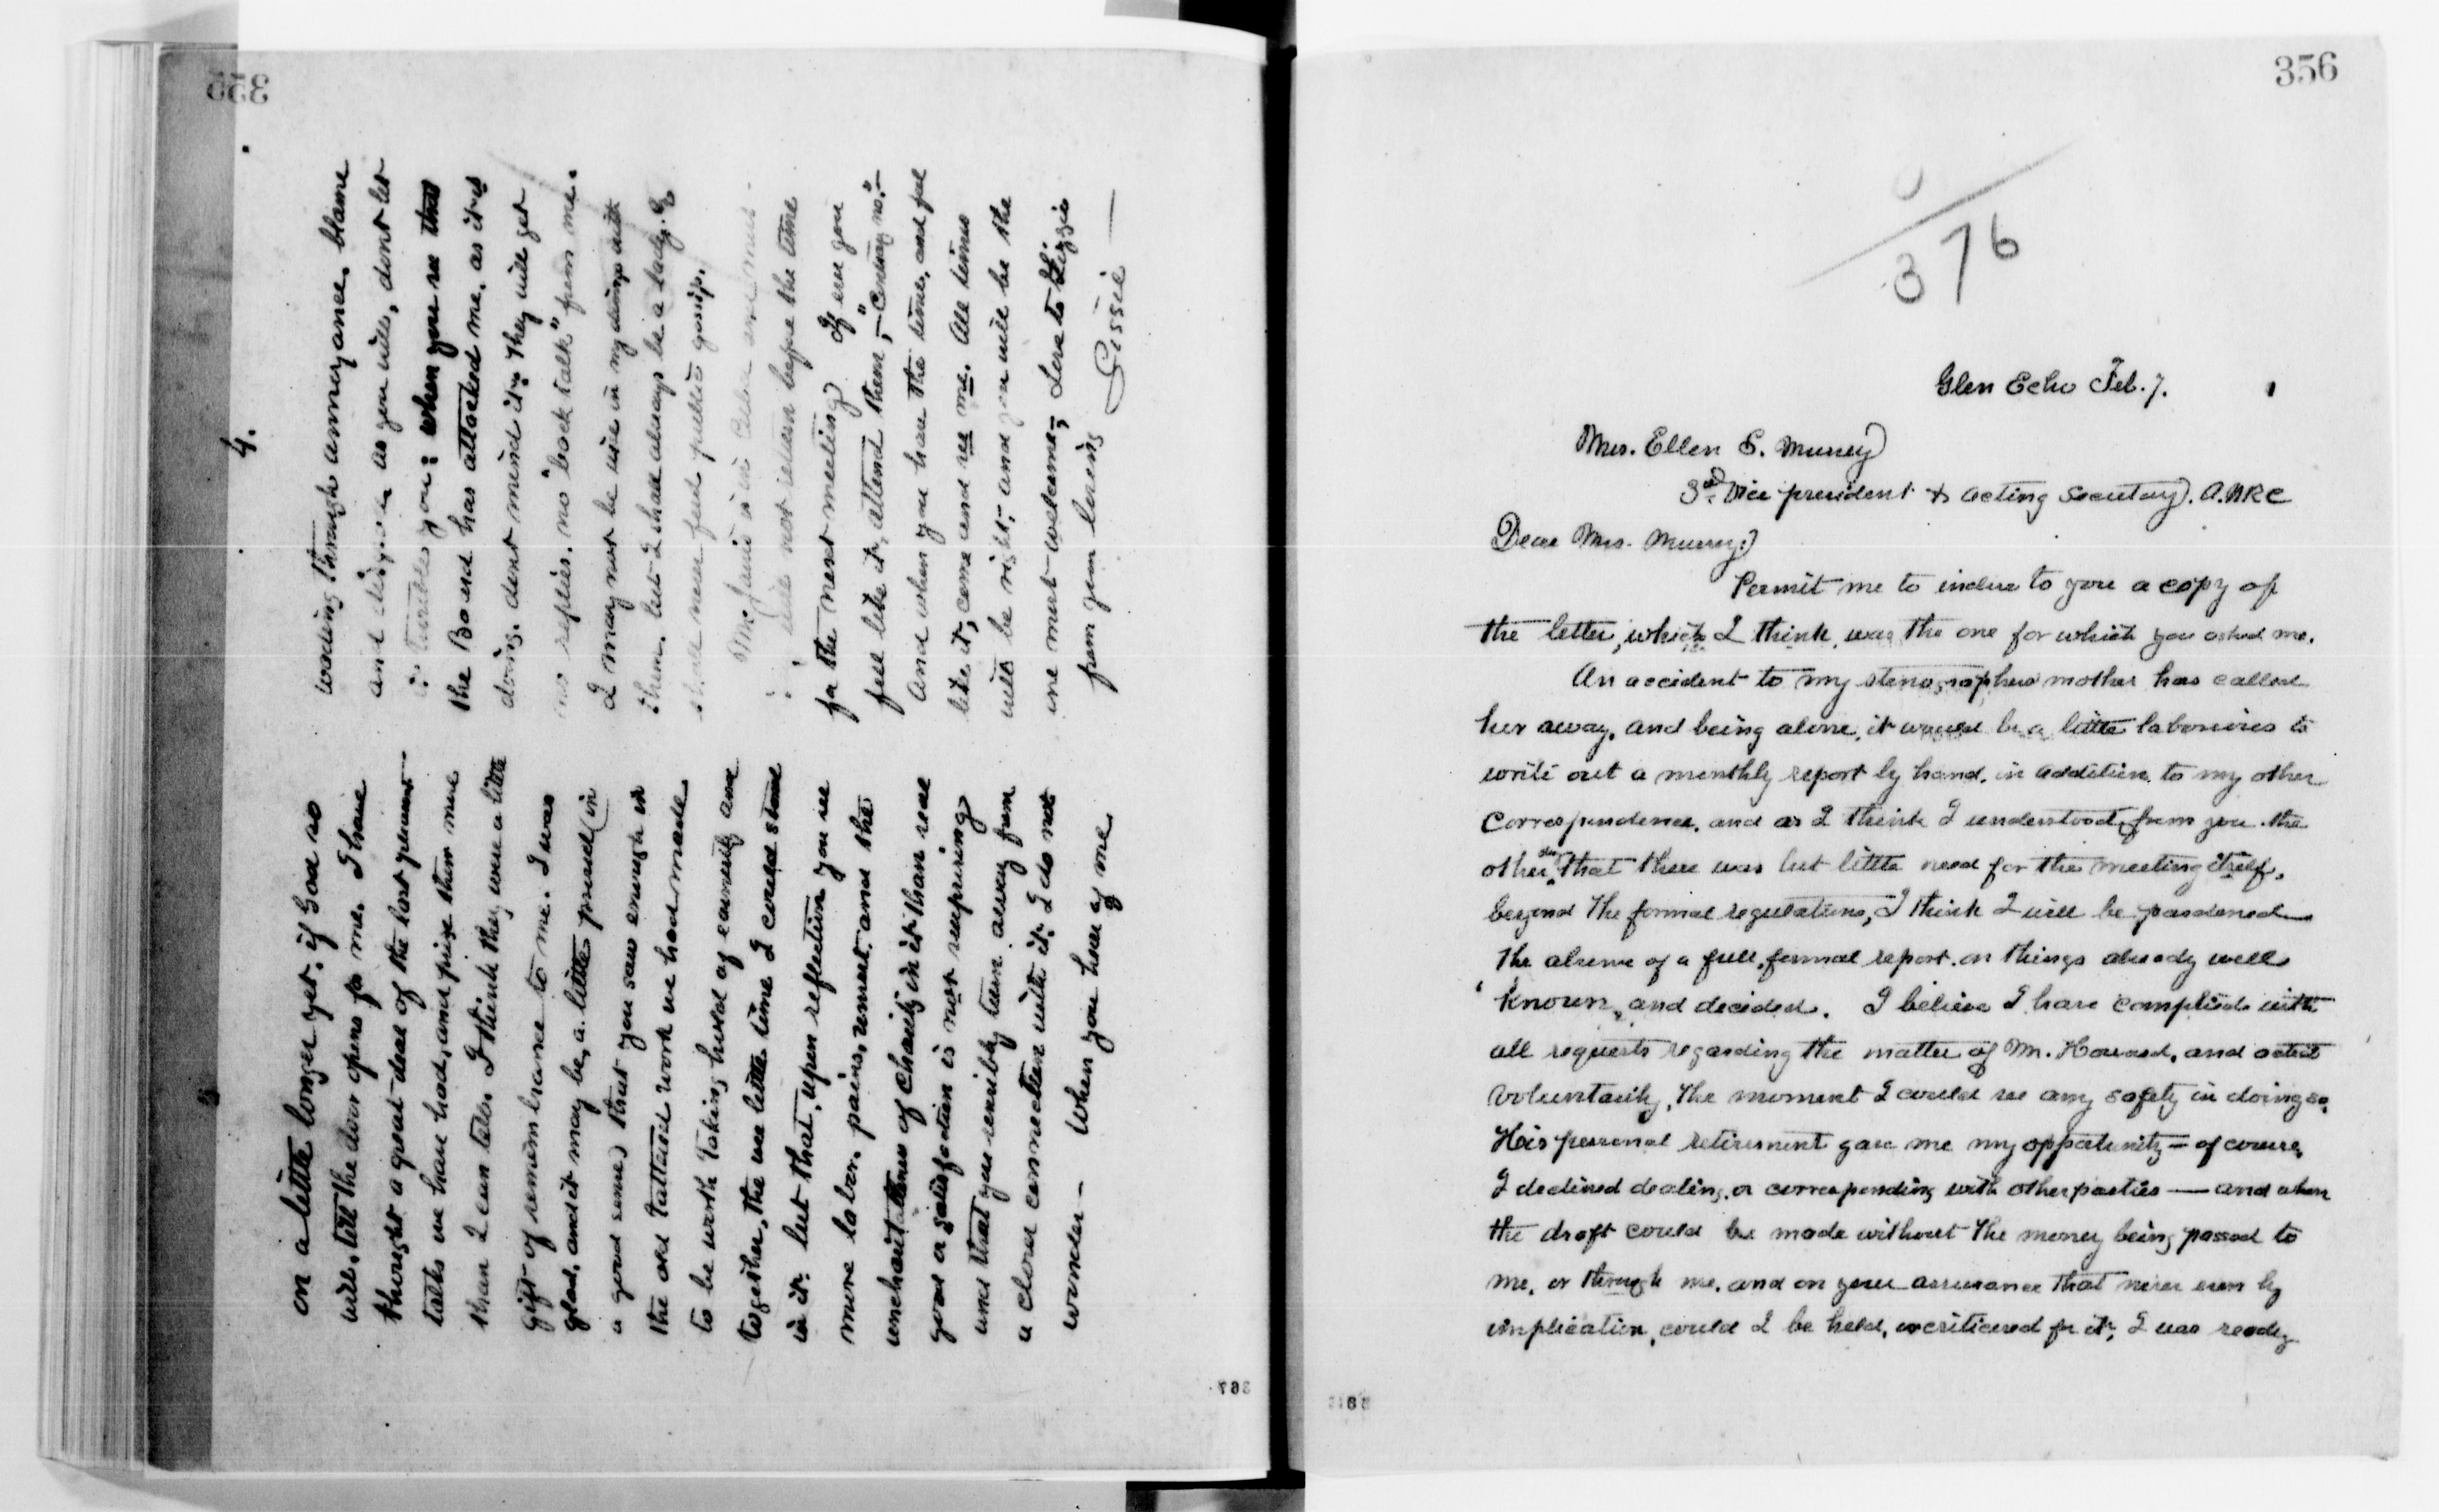 355
3
on a little longer yet, if God so
will, till the door opens for me. I have
thought a great deal of the last pleasant
talks we have had, and prize them more
than I can tell. I think they were a little
gift of remembrance to me. I was
glad, and it may be, a little proud (in
a good sense) that you saw enough in
the old tattered work we had made
to be worth taking hold of earnestly and
together, the wee little time I could stand
in it. but that, upon reflection you see
more labor, pains, unrest and the
uncharitableness of charity in it than real
good or satisfaction is not surprising
and that you sensibly turn away from
a closer connection with it. I do not
wonder— When you hear of me
4.
wading through annoyance, blame
and as you will, dont let
it trouble you: when you see that
the Board has attacked me, as it is
doing, dont mind it. They will get
no replies, no "back talk" from me.
I may not be wise in my dealings with
them, but I shall always be a lady. &
shall never feed public gossip.
Mr.
will not return before the time
for the next meeting. If ever you
feel like it, attend them,—"Corning no."—
And when you have the time, and feel
like it, come and see me. All times
will be right, and you will be the
one most welcome— Love to Lizzie
from your loving Sissie —
367
356
376
Glen Echo Feb. 7.
Mrs. Ellen S. Mussey
3rd Vice president & acting Secretary. A.N.R.C
Dear Mrs. Mussey:
Permit me to inclose to you a copy of
the letter, which I think, was the one for which you asked me.
An accident to my stenographers mother has called
her away, and being alone, it would be a little laborious to
write out a monthly report by hand, in addition to my other
correspondence, and as I think I understood from you the
other day that there was but little need for the meeting itself,
beyond the formal regulations, I think I will be pardoned
the absence of a full, formal report, on things already well
known, and decided. I believe I have complied with
all requests regarding the matter of Mr. Howard, and acted
voluntarily, the moment I could see any safety in doing so.
His personal retirement gave me my opportunity— of course,
I declined dealing, or corresponding with other parties — and when
the draft could be made without the money being passed to
me, or through me, and on your assurance that never even by
implication, could I be held, or criticised for it, I was ready